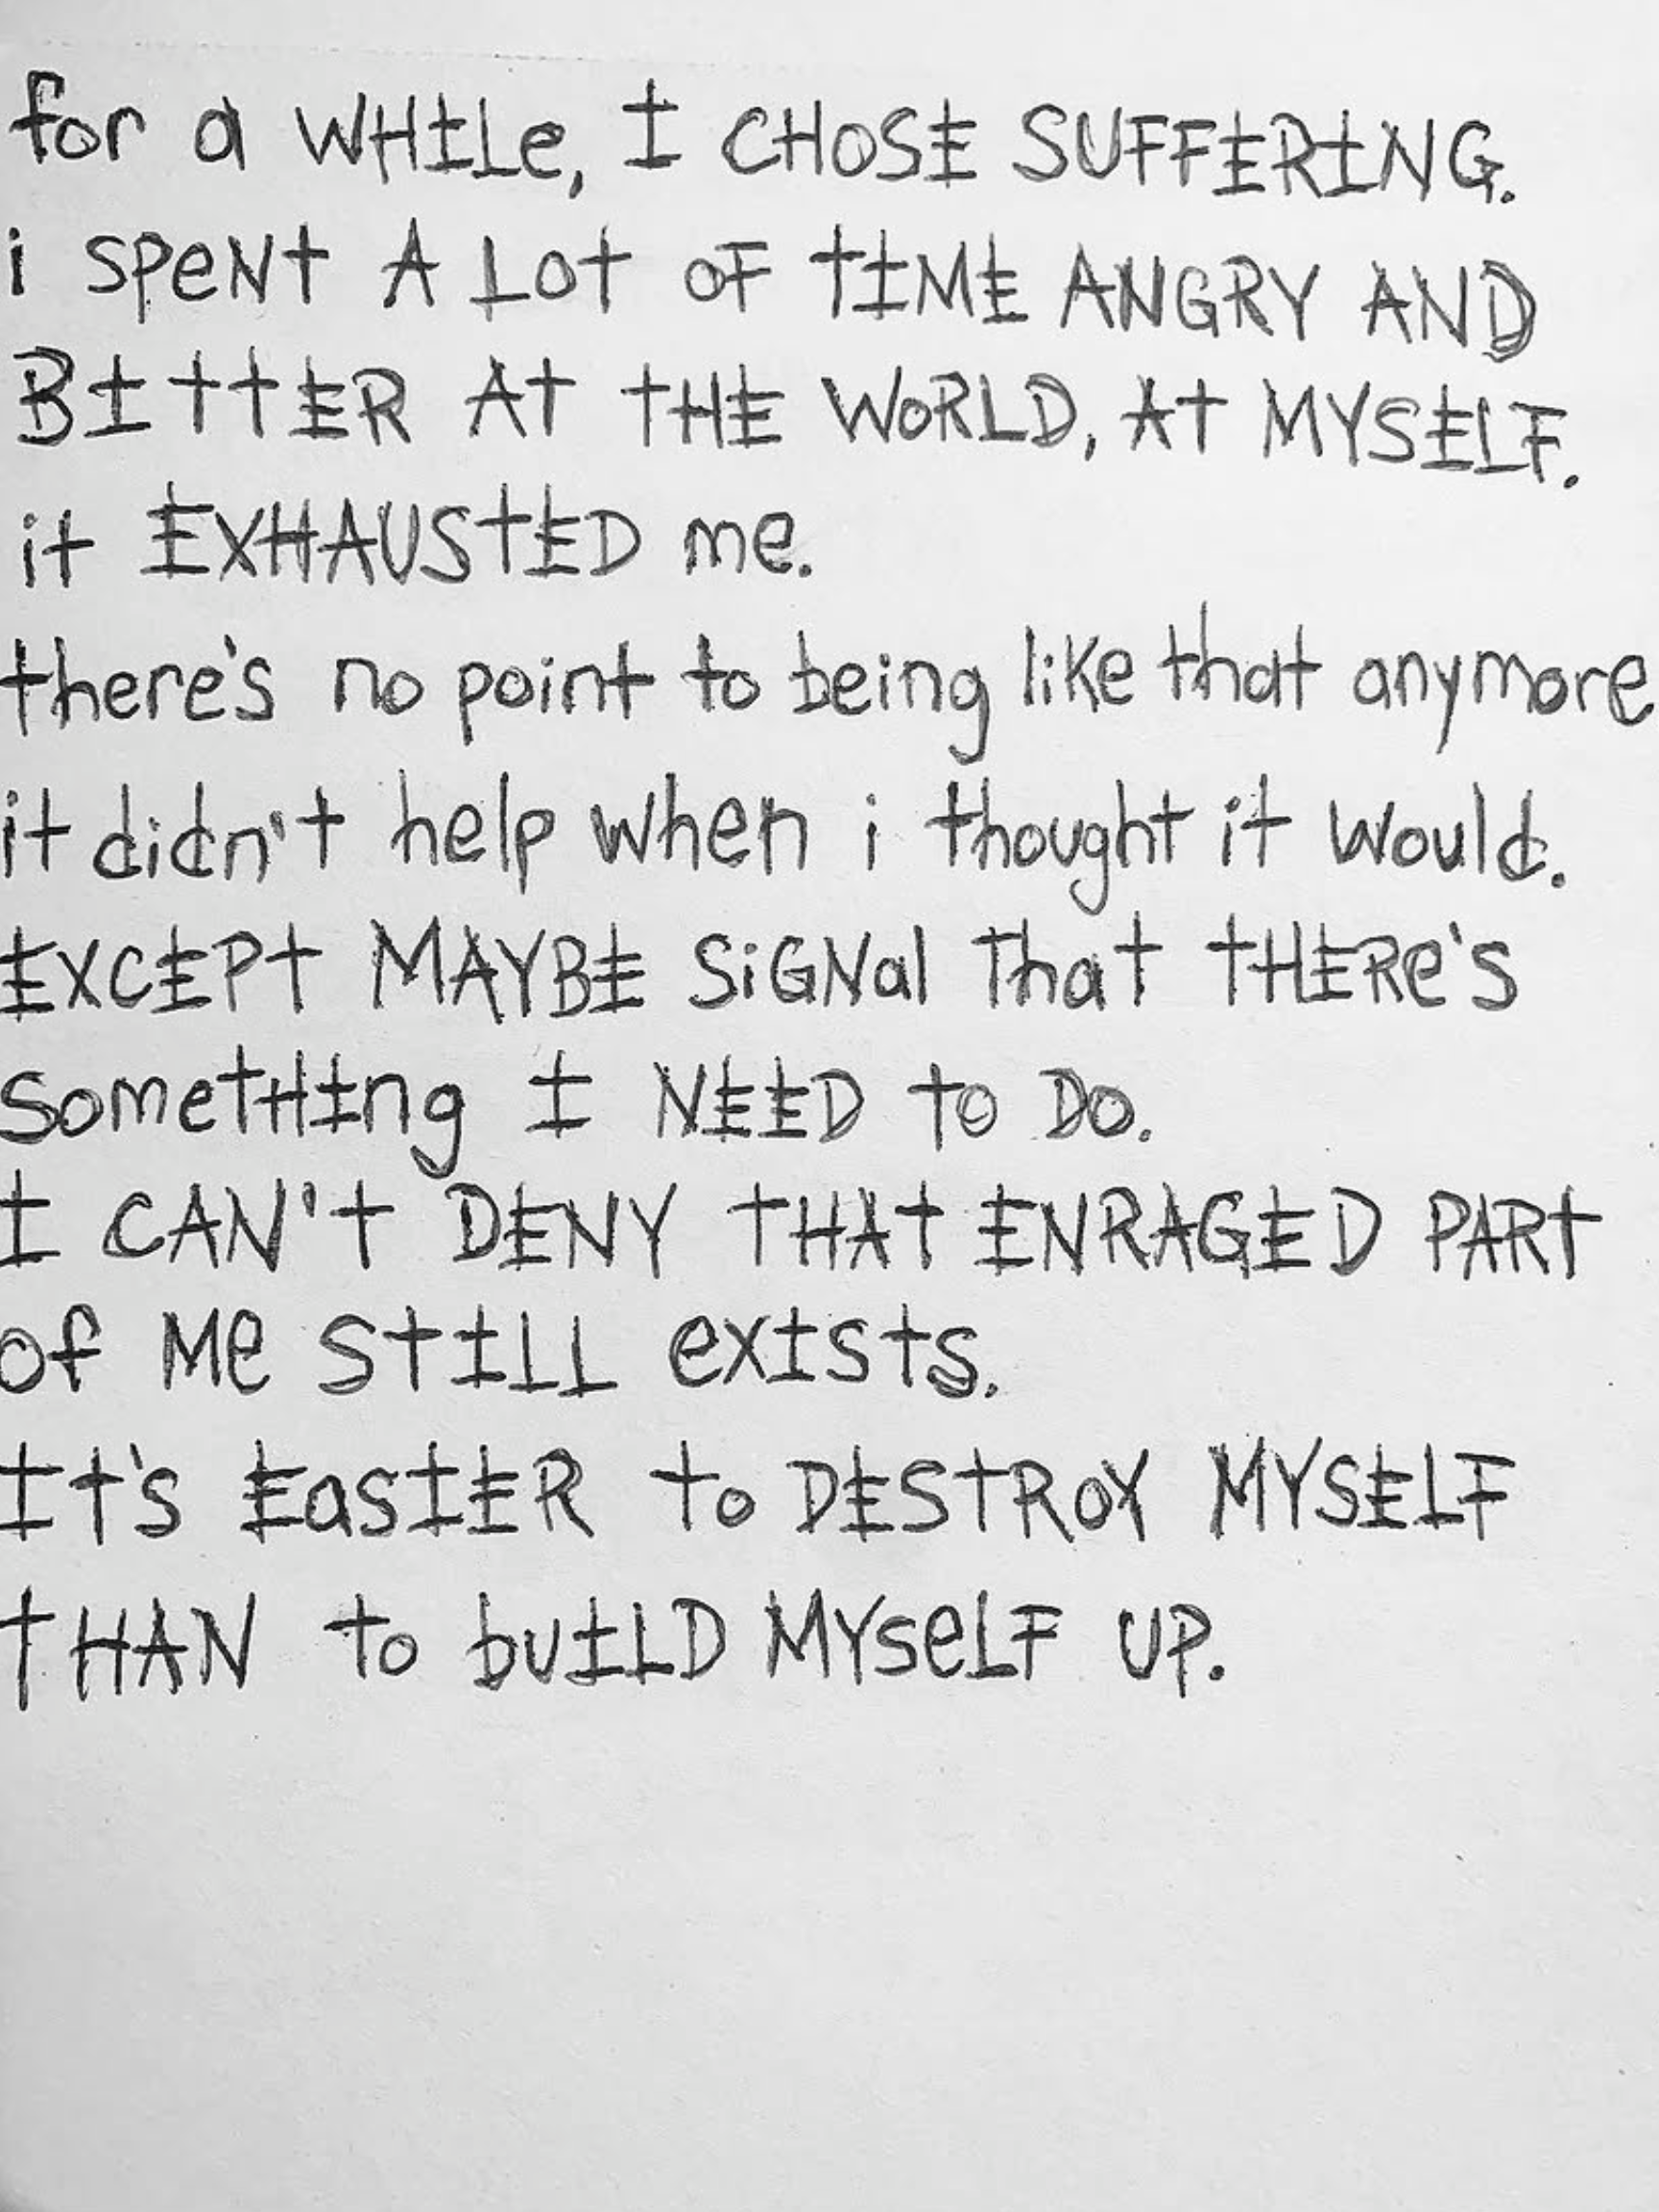 for a WHILe, I CHOSE SUFFERING.
i SPeNt A LOt OF tIME ANGRY AND
BIttER At tHE WoRLD, At MYSELF.
it EXHAUStED me.
there's no point to being like that anymore
it didn't help when i thought it would.
EXCEPt MAYBE SiGNal that tHERe's
SometHIng I NEED to DO.
I CAN't DENY tHAt ENRAGED PARt
of Me StILL exIsts.
It's EasIER to DEStROY MYSELF
tHAN to buILD MYseLF UP.